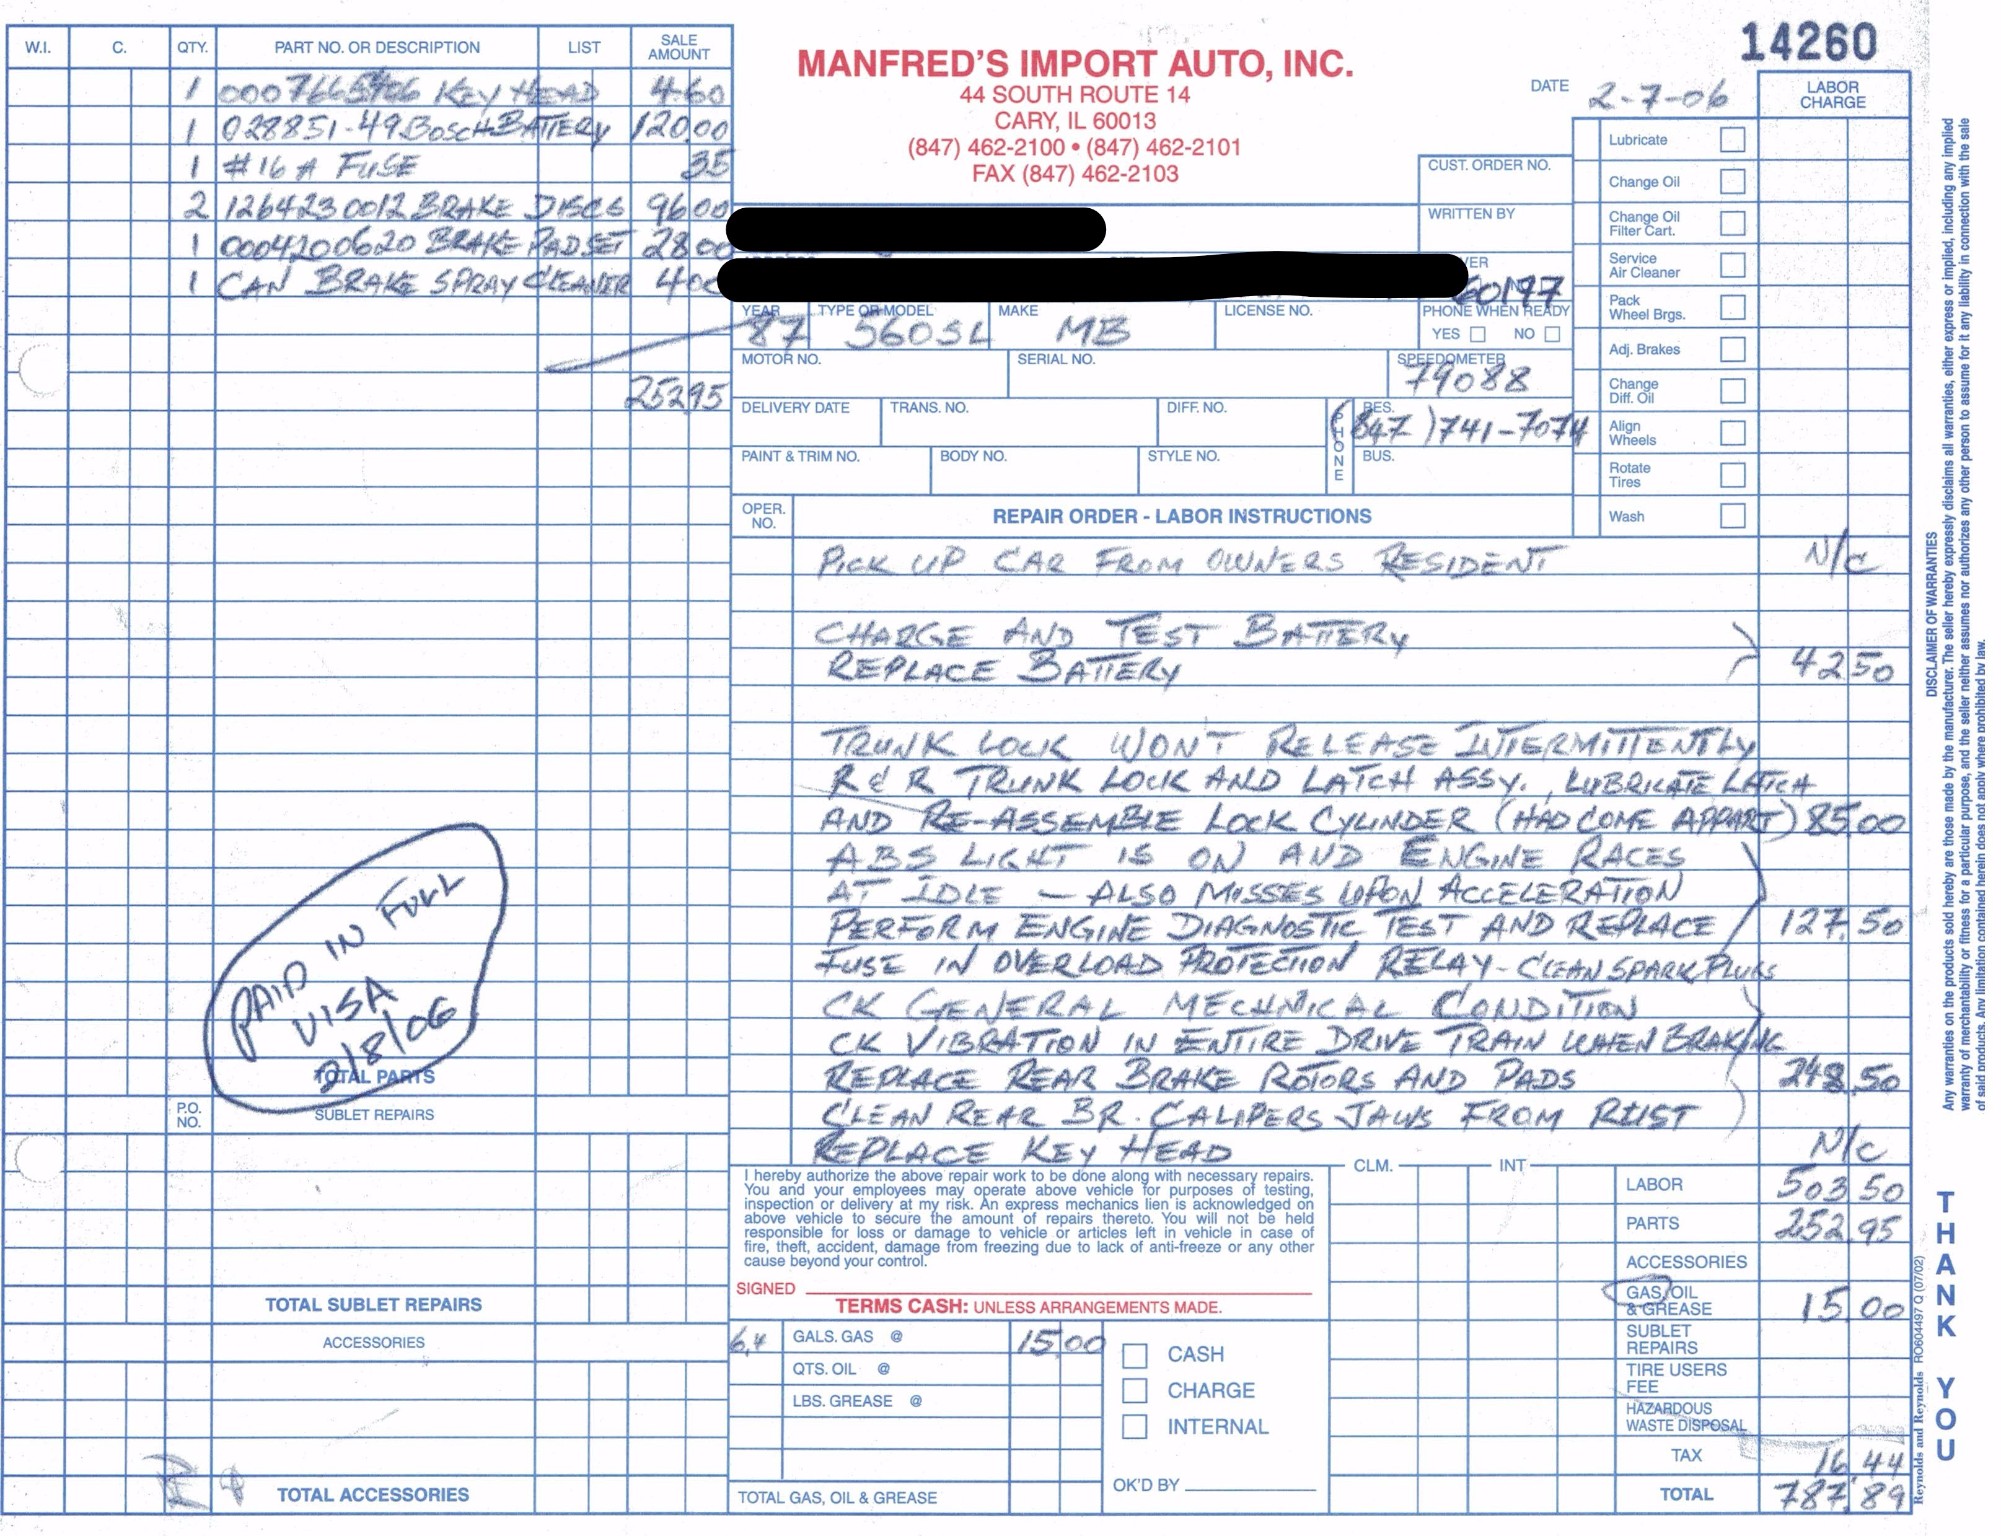 14260
MANFRED'S IMPORT AUTO, INC.
44 SOUTH ROUTE 14
CARY, IL 60013
(847) 462-2100 • (847) 462-2101
FAX (847) 462-2103
DATE 2-7-06
LABOR CHARGE
W.I. C. QTY. PART NO. OR DESCRIPTION LIST SALE AMOUNT
1 KEY HEAD 4.60
1 028851-49 BOSCH BATTERY 120.00
1 #16 A FUSE 35
2 1264230012 BRAKE DISCS 96.00
1 0004200620 BRAKE PAD SET 28.00
1 CAN BRAKE SPRAY CLEANER 4.00
252.95
PAID IN FULL
VISA
2/8/06
TOTAL PARTS
P.O. NO. SUBLET REPAIRS
TOTAL SUBLET REPAIRS
ACCESSORIES
TOTAL ACCESSORIES
CUST. ORDER NO.
WRITTEN BY
60197
YEAR 87 TYPE OR MODEL 560SL MAKE MB LICENSE NO. PHONE WHEN READY
YES NO
MOTOR NO. SERIAL NO. SPEEDOMETER 79088
DELIVERY DATE TRANS. NO. DIFF. NO. PHONE RES. (847) 741-7074
PAINT & TRIM NO. BODY NO. STYLE NO. BUS.
Lubricate
Change Oil
Change Oil Filter Cart.
Service Air Cleaner
Pack Wheel Brgs.
Adj. Brakes
Change Diff. Oil
Align Wheels
Rotate Tires
Wash
OPER. NO. REPAIR ORDER - LABOR INSTRUCTIONS
PICK UP CAR FROM OWNERS RESIDENT N/C
CHARGE AND TEST BATTERY
REPLACE BATTERY 42.50
TRUNK LOCK WON'T RELEASE INTERMITTENTLY
R & R TRUNK LOCK AND LATCH ASSY., LUBRICATE LATCH
AND RE-ASSEMBLE LOCK CYLINDER (HAD COME APPART) 85.00
ABS LIGHT IS ON AND ENGINE RACES
AT IDLE — ALSO MISSES UPON ACCELERATION
PERFORM ENGINE DIAGNOSTIC TEST AND REPLACE 127.50
FUSE IN OVERLOAD PROTECTION RELAY - CLEAN SPARK PLUGS
CK GENERAL MECHNICAL CONDITION
CK VIBRATION IN ENTIRE DRIVE TRAIN WHEN BRAKING
REPLACE REAR BRAKE ROTORS AND PADS 248.50
CLEAN REAR BR. CALIPERS JAWS FROM RUST
REPLACE KEY HEAD N/C
I hereby authorize the above repair work to be done along with necessary repairs.
You and your employees may operate above vehicle for purposes of testing,
inspection or delivery at my risk. An express mechanics lien is acknowledged on
above vehicle to secure the amount of repairs thereto. You will not be held
responsible for loss or damage to vehicle or articles left in vehicle in case of
fire, theft, accident, damage from freezing due to lack of anti-freeze or any other
cause beyond your control.
SIGNED
TERMS CASH: UNLESS ARRANGEMENTS MADE.
6,4 GALS. GAS @ 15.00
QTS. OIL @
LBS. GREASE @
TOTAL GAS, OIL & GREASE
CASH
CHARGE
INTERNAL
OK'D BY
CLM. INT
LABOR 503.50
PARTS 252.95
ACCESSORIES
GAS/OIL & GREASE 15.00
SUBLET REPAIRS
TIRE USERS FEE
HAZARDOUS WASTE DISPOSAL
TAX 16.44
TOTAL 787.89
DISCLAIMER OF WARRANTIES
Any warranties on the products sold hereby are those made by the manufacturer. The seller hereby expressly disclaims all warranties, either express or implied, including any implied
warranty of merchantability or fitness for a particular purpose, and the seller neither assumes nor authorizes any other person to assume for it any liability in connection with the sale
of said products. Any limitation contained herein does not apply where prohibited by law.
THANK YOU
Reynolds and Reynolds RO604497 Q (07/02)